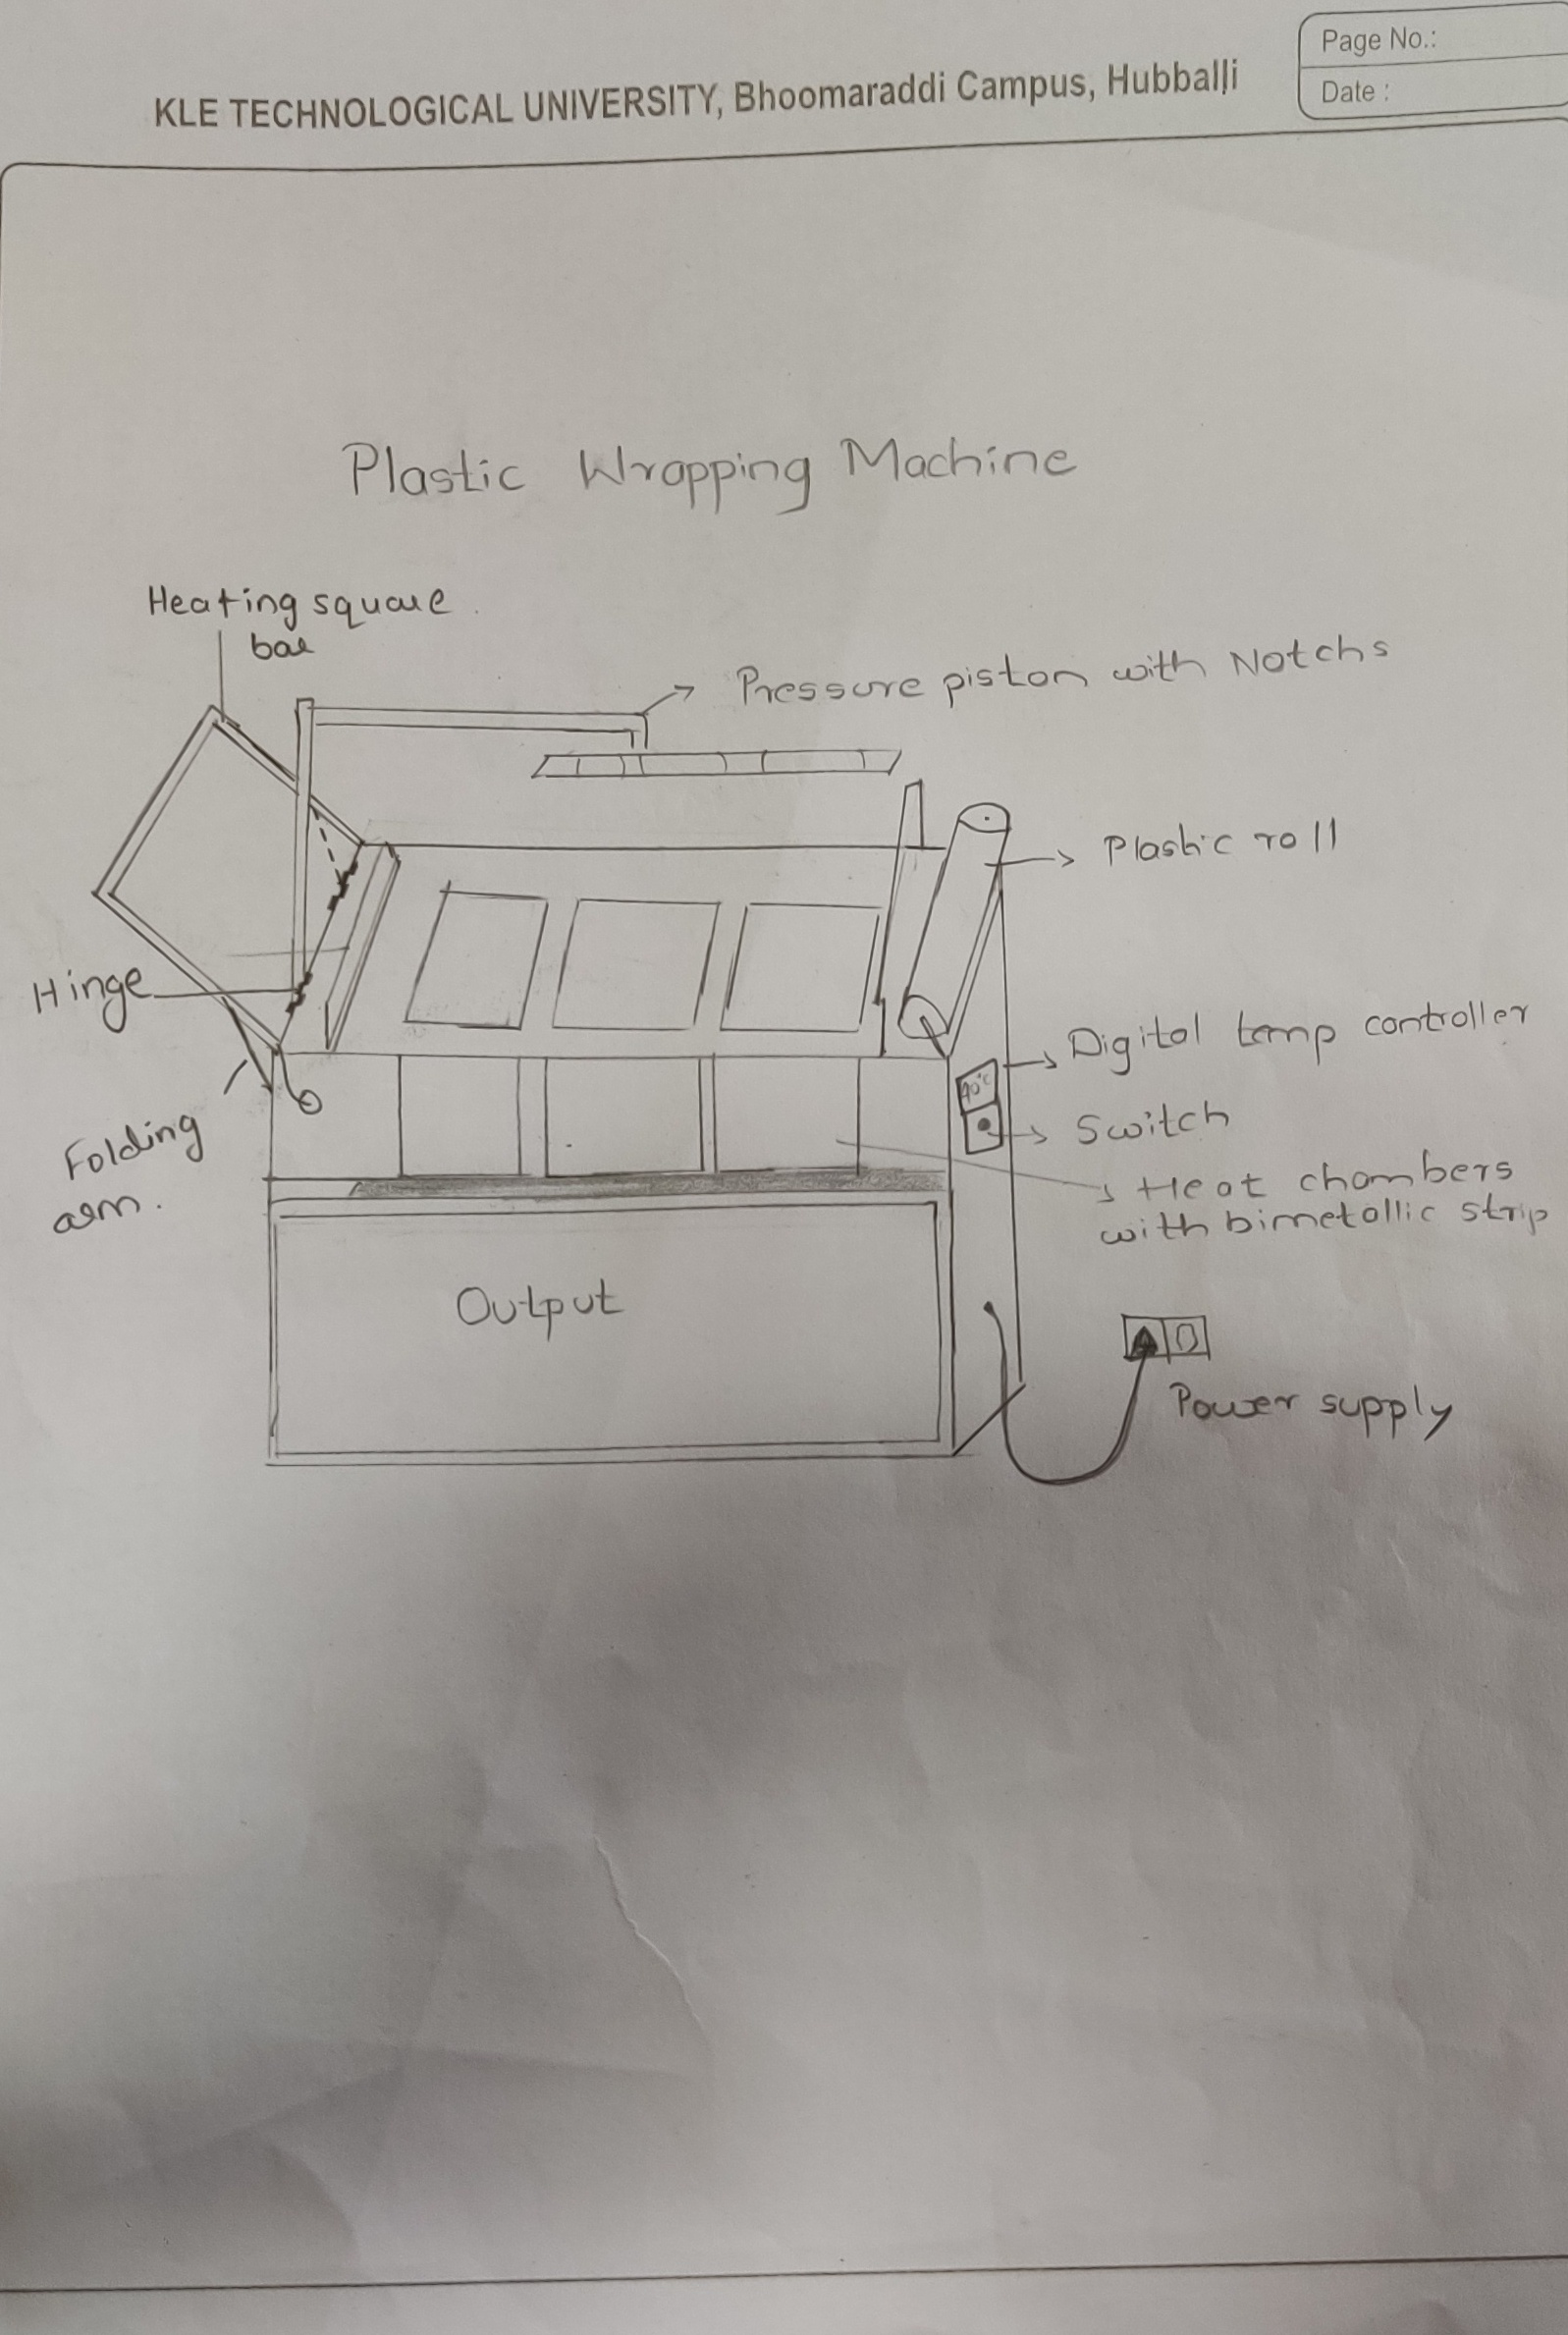 Page No.:
Date :
KLE TECHNOLOGICAL UNIVERSITY, Bhoomaraddi Campus, Hubballi
Plastic Wrapping Machine
Heating square
bar
Pressure piston with Notchs
Plastic roll
Hinge
Digital temp controller
Switch
Folding
arm.
Heat chambers
with bimetallic strip
Output
Power supply